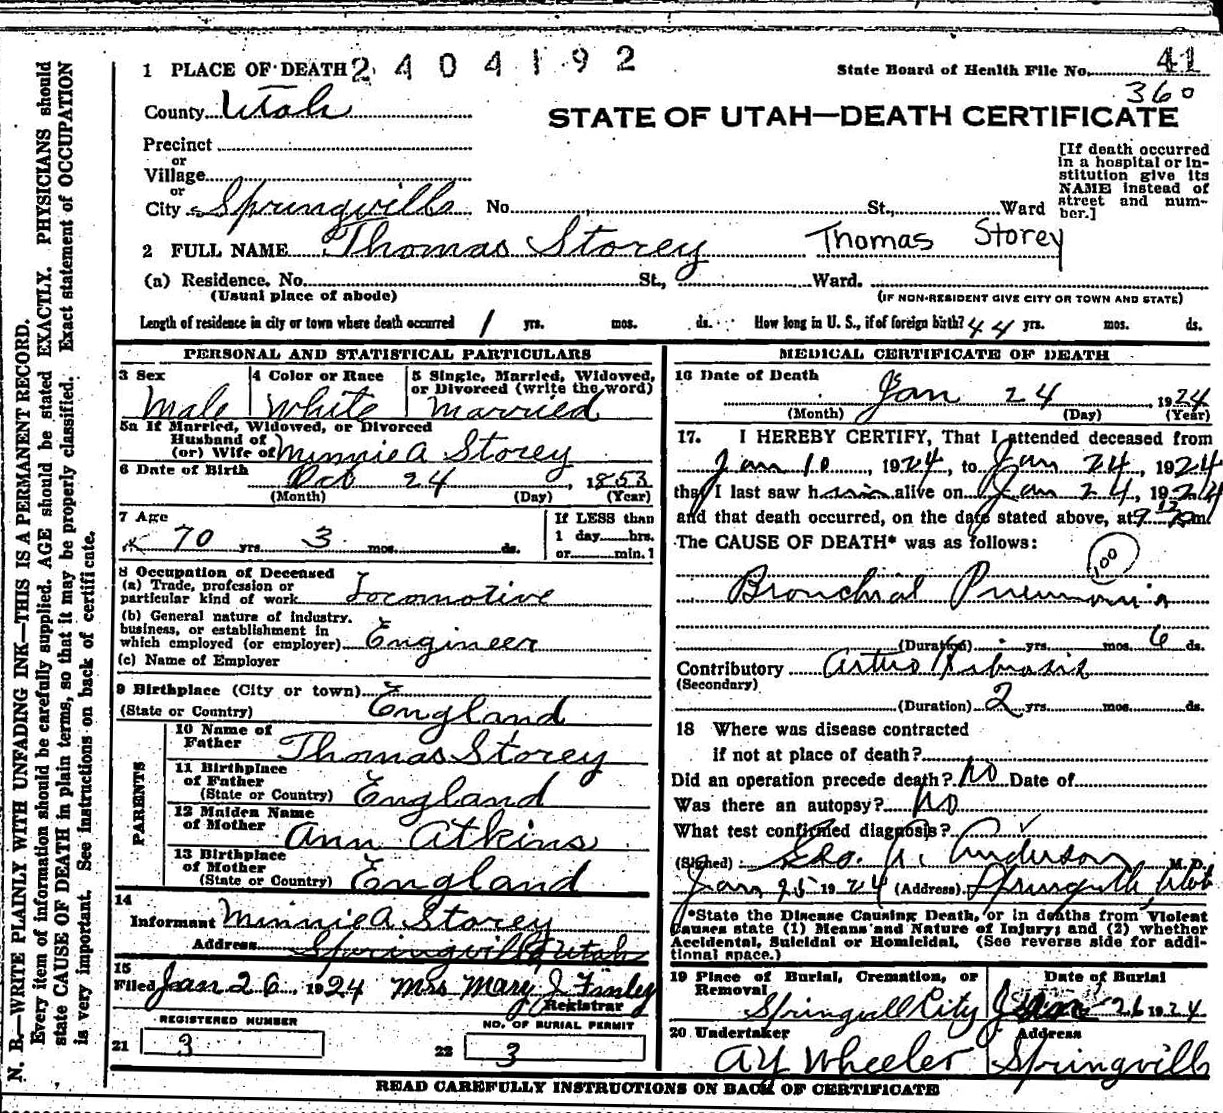 1 PLACE OF DEATH 2404192
State Board of Health File No. 41
360
County Utah
STATE OF UTAH—DEATH CERTIFICATE
Precinct
or
Village
or
City Springville No. St., Ward
[If death occurred
in a hospital or in-
stitution give its
NAME instead of
street and num-
ber.]
2 FULL NAME Thomas Storey Thomas Storey
(a) Residence, No. St., Ward.
(Usual place of abode) (IF NON-RESIDENT GIVE CITY OR TOWN AND STATE)
Length of residence in city or town where death occurred 1 yrs. mos. ds. How long in U. S., if of foreign birth? 44 yrs. mos. ds.
PERSONAL AND STATISTICAL PARTICULARS
3 Sex Male
4 Color or Race White
5 Single, Married, Widowed,
or Divorced (write the word)
Married
5a If Married, Widowed, or Divorced
Husband of
(or) Wife of Minnie A Storey
6 Date of Birth Oct 24, 1853
(Month) (Day) (Year)
7 Age
70 yrs. 3 mos. ds.
If LESS than
1 day hrs.
or min.
8 Occupation of Deceased
(a) Trade, profession or
particular kind of work Locomotive
(b) General nature of industry,
business, or establishment in
which employed (or employer) Engineer
(c) Name of Employer
9 Birthplace (City or town)
(State or Country) England
PARENTS
10 Name of
Father Thomas Storey
11 Birthplace
of Father
(State or Country) England
12 Maiden Name
of Mother Ann Atkins
13 Birthplace
of Mother
(State or Country) England
14
Informant Minnie A Storey
Address Springville Utah
15
Filed Jan 26, 1924 Mrs Mary J Finley
Registrar
REGISTERED NUMBER
21 3
NO. OF BURIAL PERMIT
22 3
MEDICAL CERTIFICATE OF DEATH
16 Date of Death
Jan 24, 1924
(Month) (Day) (Year)
17. I HEREBY CERTIFY, That I attended deceased from
Jan 10, 1924, to Jan 24, 1924
that I last saw h alive on Jan 24, 1924
and that death occurred, on the date stated above, at 9 m.
The CAUSE OF DEATH* was as follows:
100
Bronchial Pneumonia
(Duration) yrs. mos. 6 ds.
Contributory
(Secondary)
(Duration) 2 yrs. mos. ds.
18 Where was disease contracted
if not at place of death?
Did an operation precede death? no Date of
Was there an autopsy? no
What test confirmed diagnosis?
(Signed) Geo. A. Anderson M. D.
Jan 25 1924 (Address) Springville, Utah
*State the Disease Causing Death, or in deaths from Violent
Causes state (1) Means and Nature of Injury; and (2) whether
Accidental, Suicidal or Homicidal. (See reverse side for addi-
tional space.)
19 Place of Burial, Cremation, or
Removal
Springvill City
Date of Burial
Jan 26 1924
20 Undertaker
A Y Wheeler
Address
Springville
READ CAREFULLY INSTRUCTIONS ON BACK OF CERTIFICATE
N. B.—WRITE PLAINLY WITH UNFADING INK—THIS IS A PERMANENT RECORD.
Every item of information should be carefully supplied. AGE should be stated EXACTLY. PHYSICIANS should
state CAUSE OF DEATH in plain terms, so that it may be properly classified. Exact statement of OCCUPATION
is very important. See instructions on back of certificate.